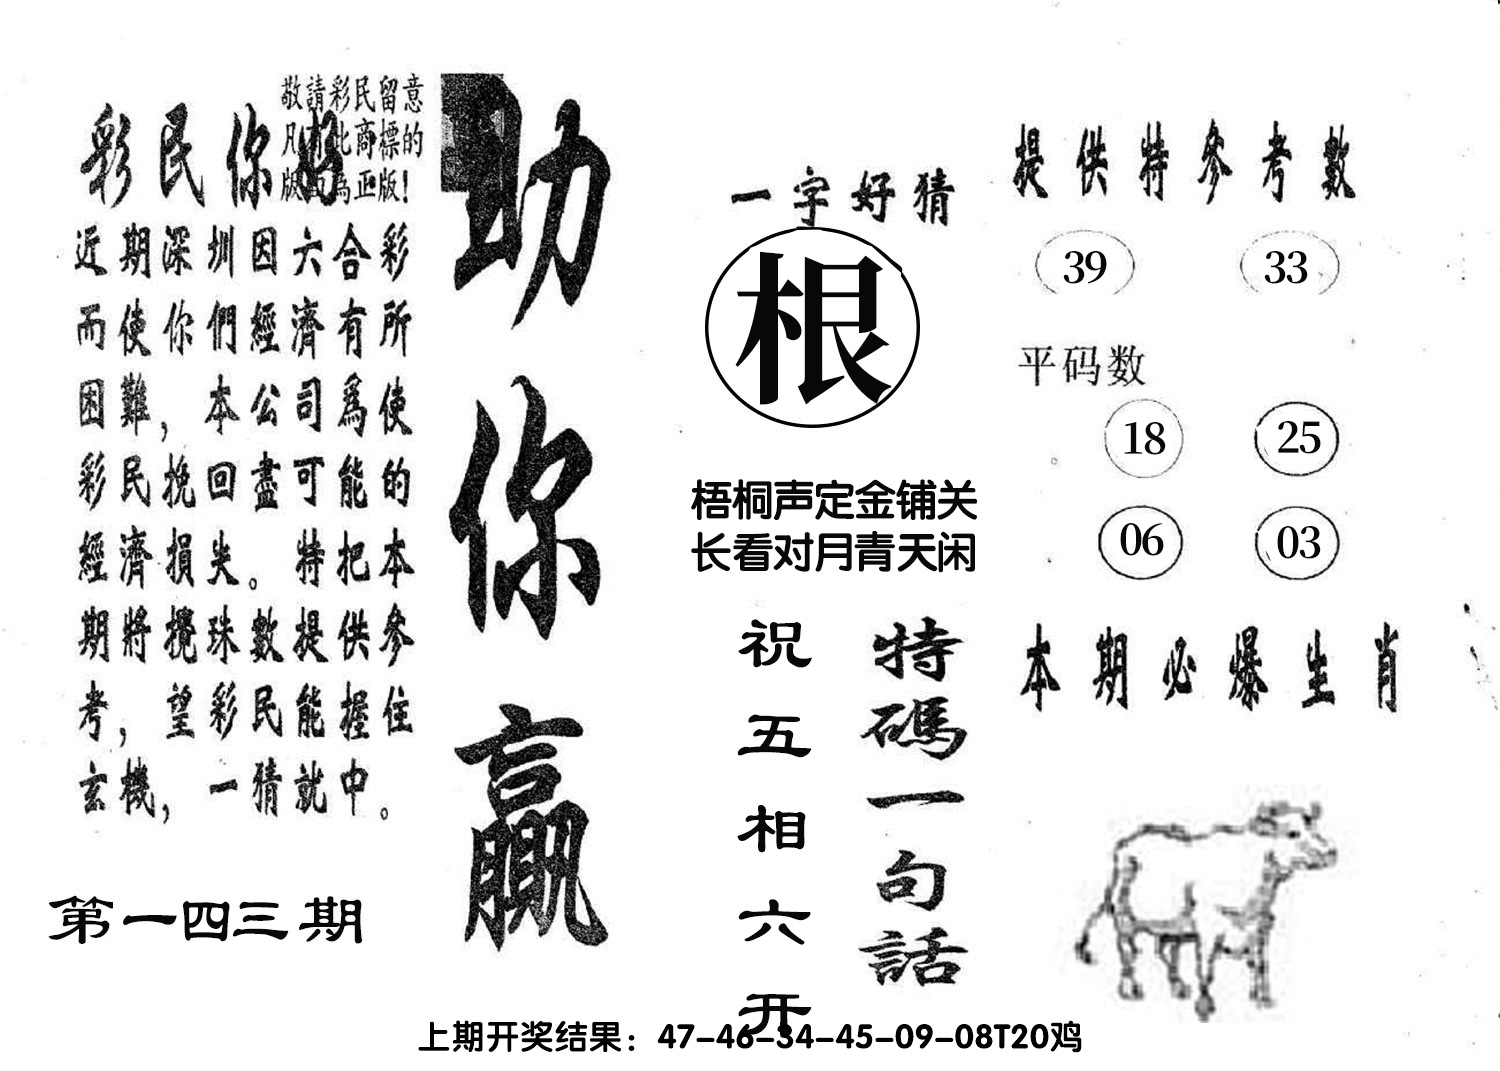 敬請彩民留意
凡有此商標的
版面為正版!
彩民你好
近期深圳因六合彩
而使你們經濟有所
困難，本公司爲使
彩民挽回盡可能的
經濟損失。特把本
期將攪珠數提供參
考，望彩民能握住
玄機，一猜就中。
第一四三期
助你贏
一字好猜
根
梧桐声定金铺关
长看对月青天闲
特碼一句話
祝五相六开
提供特參考數
39 33
平码数
18 25
06 03
本期必爆生肖
上期开奖结果：47-46-34-45-09-08T20鸡